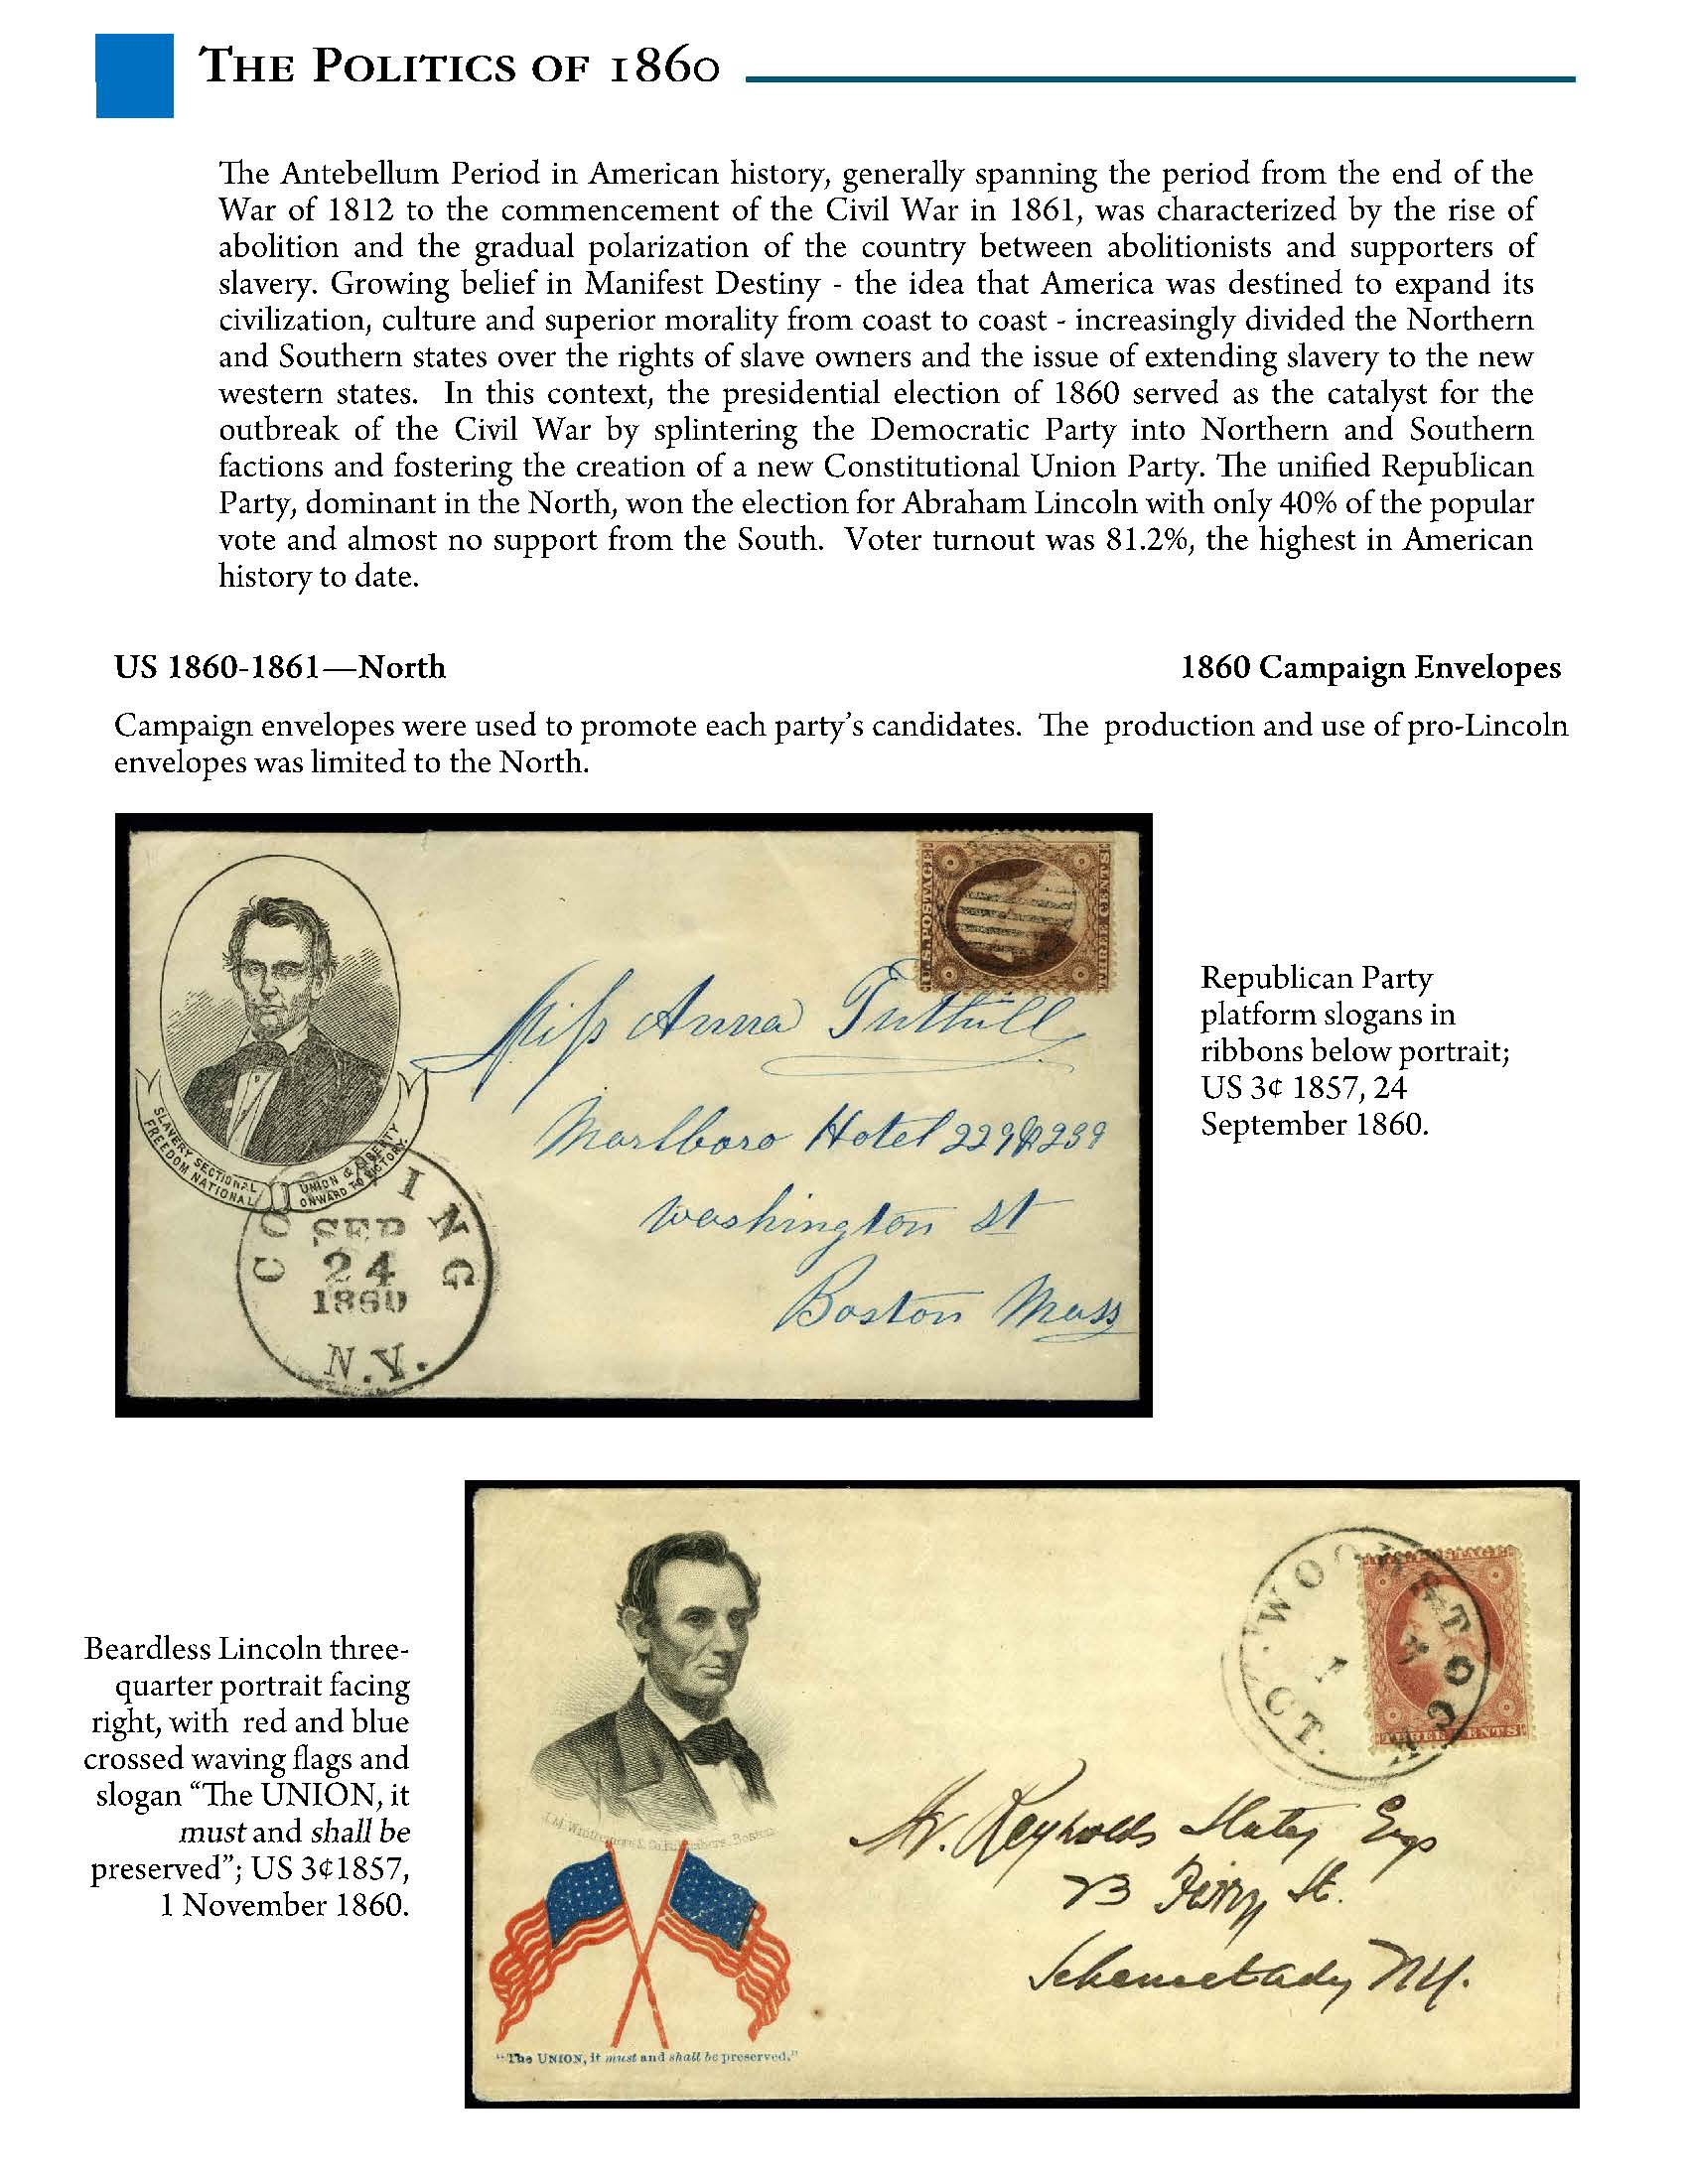 The Politics of 1860
The Antebellum Period in American history, generally spanning the period from the end of the
War of 1812 to the commencement of the Civil War in 1861, was characterized by the rise of
abolition and the gradual polarization of the country between abolitionists and supporters of
slavery. Growing belief in Manifest Destiny - the idea that America was destined to expand its
civilization, culture and superior morality from coast to coast - increasingly divided the Northern
and Southern states over the rights of slave owners and the issue of extending slavery to the new
western states. In this context, the presidential election of 1860 served as the catalyst for the
outbreak of the Civil War by splintering the Democratic Party into Northern and Southern
factions and fostering the creation of a new Constitutional Union Party. The unified Republican
Party, dominant in the North, won the election for Abraham Lincoln with only 40% of the popular
vote and almost no support from the South. Voter turnout was 81.2%, the highest in American
history to date.
US 1860-1861—North
1860 Campaign Envelopes
Campaign envelopes were used to promote each party's candidates. The production and use of pro-Lincoln
envelopes was limited to the North.
U.S. POSTAGE
THREE CENTS
Miss Anna Tuthill
Marlboro Hotel 229 & 239
Washington St
Boston Mass
SLAVERY SECTIONAL
FREEDOM NATIONAL
UNION & LIBERTY
ONWARD TO VICTORY.
CORNING
SEP
24
1860
N.Y.
Republican Party
platform slogans in
ribbons below portrait;
US 3¢ 1857, 24
September 1860.
Beardless Lincoln three-
quarter portrait facing
right, with red and blue
crossed waving flags and
slogan "The UNION, it
must and shall be
preserved"; US 3¢1857,
1 November 1860.
WOODSTOCK
CT.
THREE CENTS
Reynolds
23 Ferry St.
Schenectady NY.
"The UNION, it must and shall be preserved."